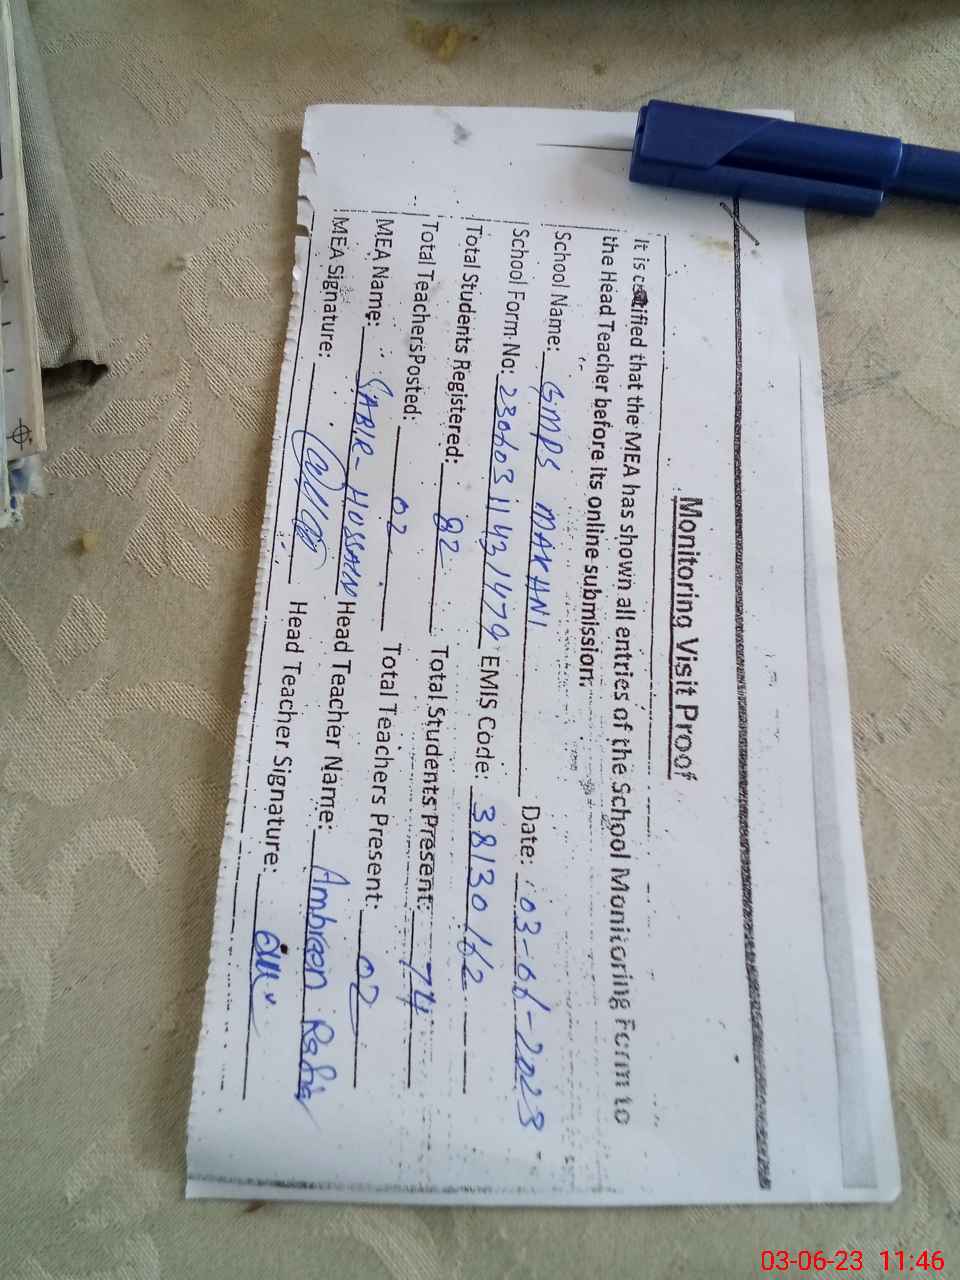 Monitoring Visit Proof
It is certified that the MEA has shown all entries of the School Monitoring Form to
the Head Teacher before its online submission.
School Name: GMPS MAKHNI Date: 03-06-2023
School Form No: 23060311431479 EMIS Code: 38130162
Total Students Registered: 82 Total Students Present: 74
Total Teachers Posted: 02 Total Teachers Present: 02
MEA Name: SABIR-HUSSAIN Head Teacher Name: Ambreen
MEA Signature: Head Teacher Signature:
03-06-23 11:46